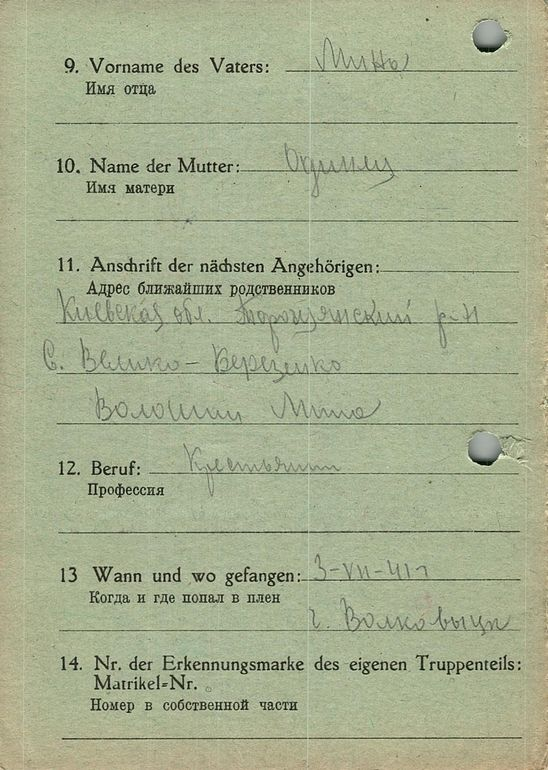 9. Vorname des Vaters: Мина
Имя отца
10. Name der Mutter: Одинец
Имя матери
11. Anschrift der nächsten Angehörigen:
Адрес ближайших родственников
Киевская обл. р-н
С. Велико-Березанко
Волошин Мина
12. Beruf: Крестьянин
Профессия
13 Wann und wo gefangen: 3-VII-41 г
Когда и где попал в плен
г. Волковыцк
14. Nr. der Erkennungsmarke des eigenen Truppenteils:
Matrikel-Nr.
Номер в собственной части